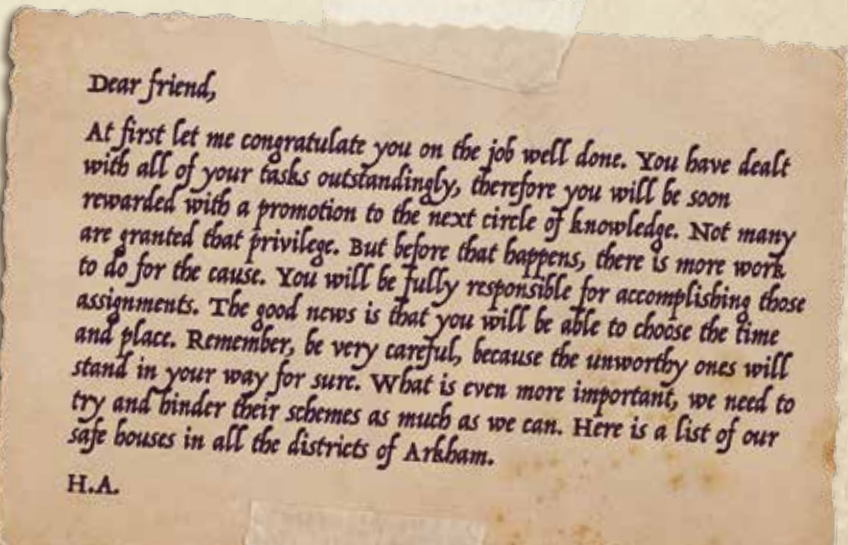 Dear friend,
At first let me congratulate you on the job well done. You have dealt
with all of your tasks outstandingly, therefore you will be soon
rewarded with a promotion to the next circle of knowledge. Not many
are granted that privilege. But before that happens, there is more work
to do for the cause. You will be fully responsible for accomplishing those
assignments. The good news is that you will be able to choose the time
and place. Remember, be very careful, because the unworthy ones will
stand in your way for sure. What is even more important, we need to
try and hinder their schemes as much as we can. Here is a list of our
safe houses in all the districts of Arkham.
H.A.